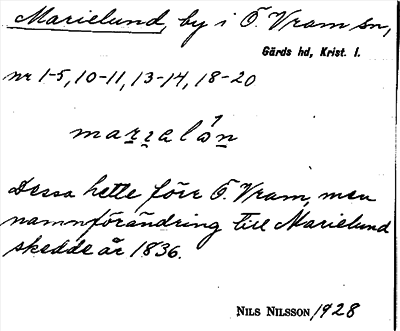 Marielund, by i Ö. Vram sn,
Gärds hd, Krist. l.
nr 1-5, 10-11, 13-14, 18-20
Dessa hette förr Ö. Vram, men
namnförändring till Marielund
skedde år 1836.
NILS NILSSON 1928